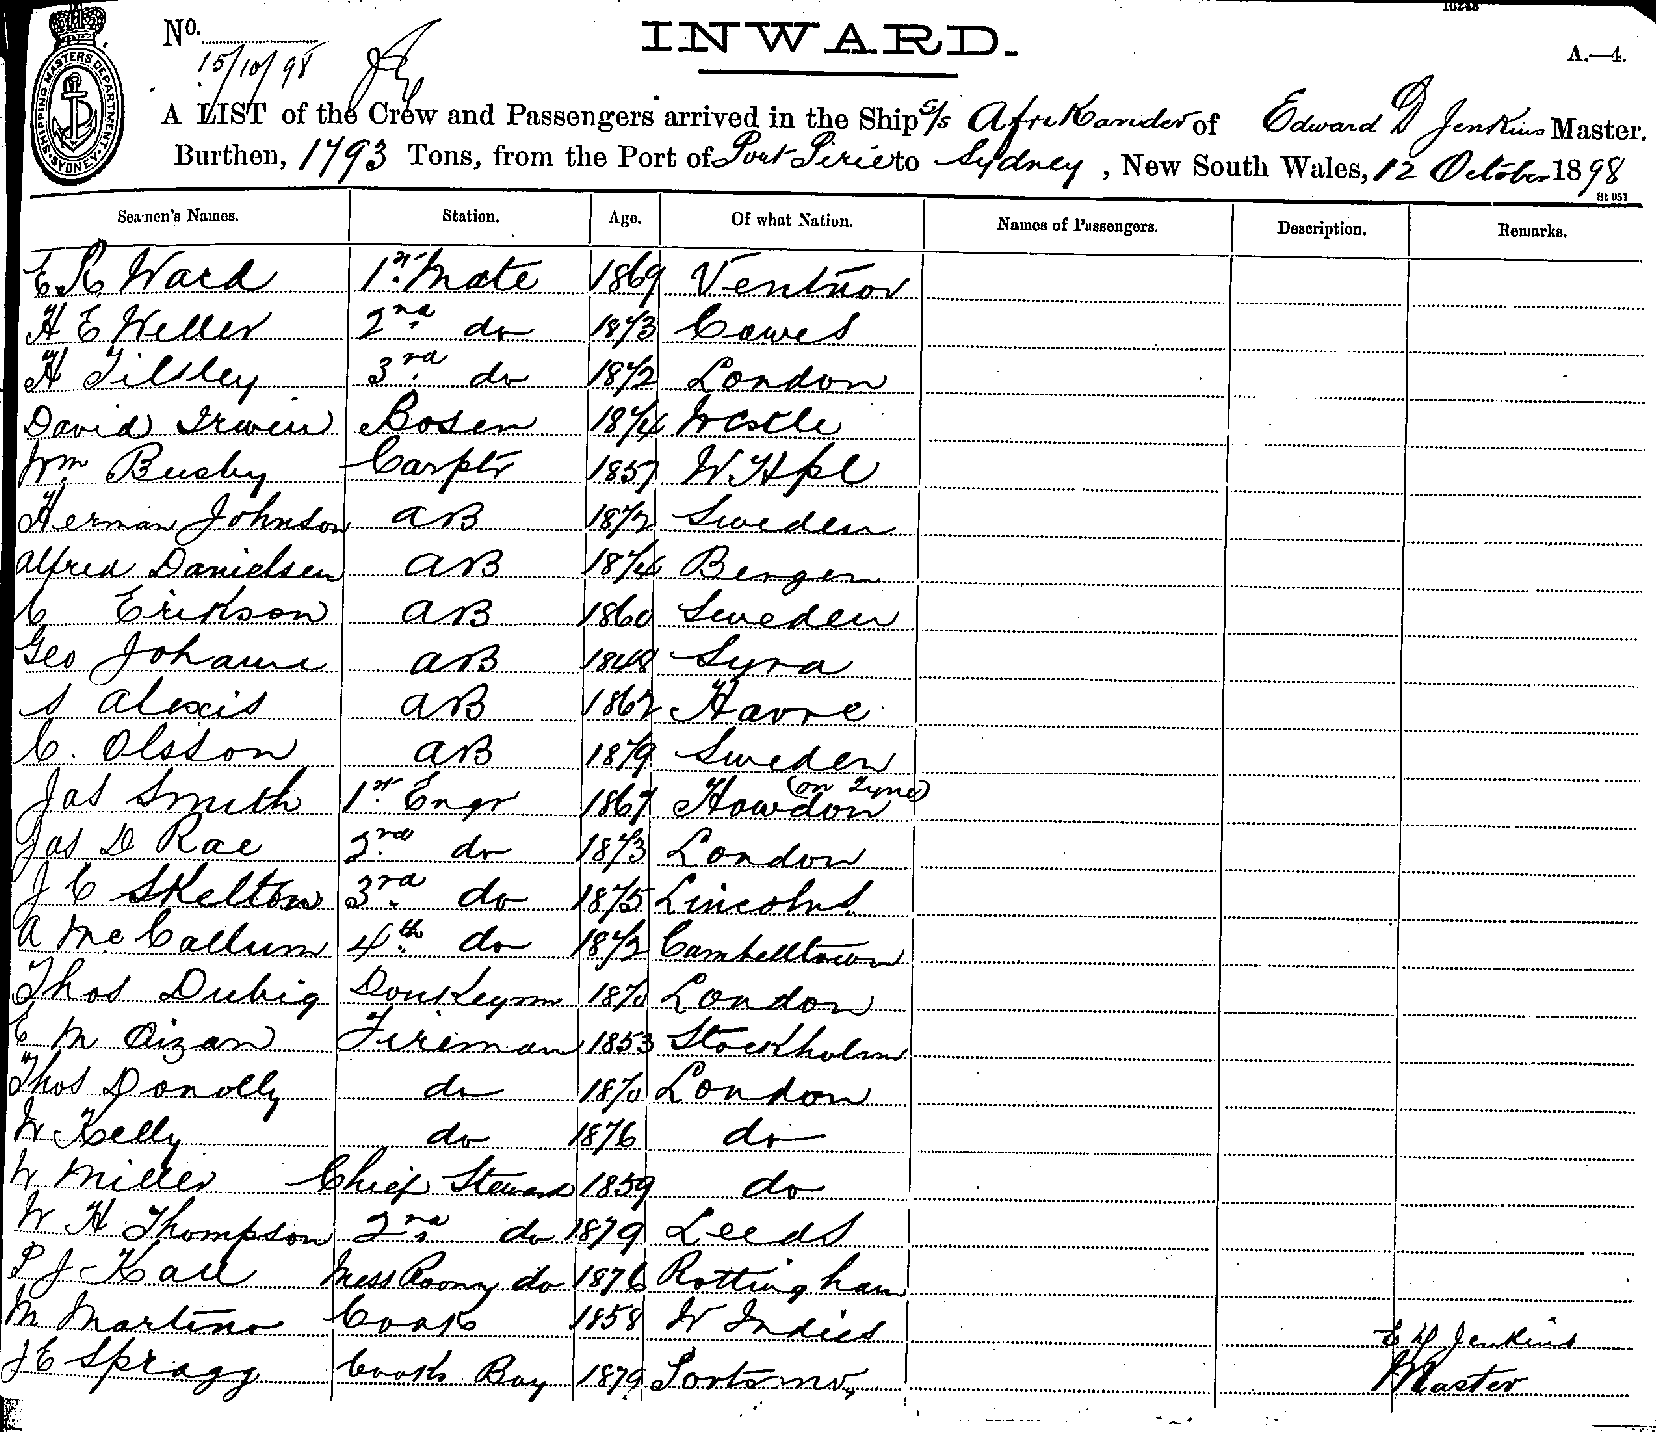 No.
15/10/98
INWARD.
A.—4.
SHIPPING MASTERS DEPARTMENT SYDNEY
A LIST of the Crew and Passengers arrived in the Ship s/s Afrikander of Edward D Jenkins Master.
Burthen, 1793 Tons, from the Port of Port Pirie to Sydney, New South Wales, 12 October 1898
Seamen's Names. Station. Age. Of what Nation. Names of Passengers. Description. Remarks.
E R Ward 1st Mate 1869 Ventnor
H E Weller 2nd do 1873 Cowes
H Tilsley 3rd do 1872 London
David Irwin Bosen 1874 Wcstle
Wm Busby Carptr 1857 W Hpl
Herman Johnson AB 1872 Sweden
Alfred Danielsen AB 1874 Bergen
C Erikson AB 1860 Sweden
Geo Johanni AB 1848 Syra
S Alexis AB 1862 Havre
C. Olsson AB 1879 Sweden
Jas Smith 1st Engr 1867 Howdon (on Tyne)
Jas D Rae 2nd do 1873 London
J C Skelton 3rd do 1875 Lincolns
A McCallum 4th do 1872 Cambelltown
Thos Dubig Donkeymn 1870 London
E M Aizan Fireman 1853 Stockholm
Thos Donolly do 1870 London
W Kelly do 1876 do
W Miller Chief Steward 1859 do
W H Thompson 2nd do 1879 Leeds
P J Karl Mess Room do 1876 Rottingham
M Martino Cook 1858 W Indies
E D Jenkins
J E Spragg Cooks Boy 1879 Portsmo,
Master